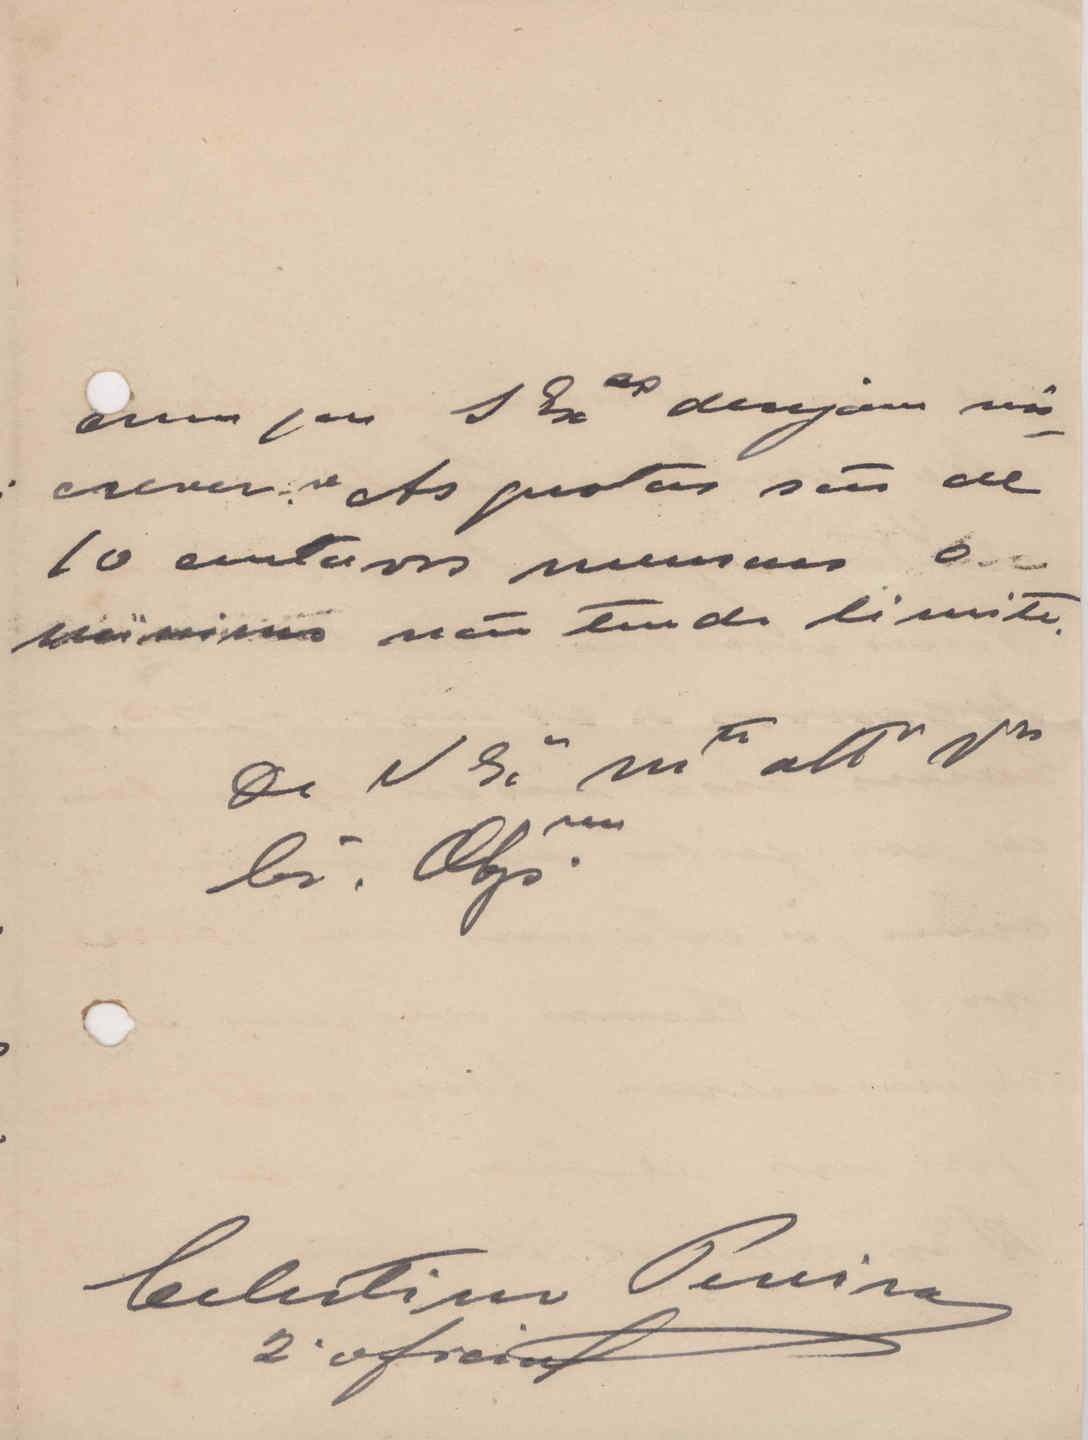 com que S Ex.as desejam ins-
crever-se As quotas são de
10 centavos mensaes o
minimo não tendo limite.
De V Ex.a m.to att.o V.or
Cr.o Obg.mo
Celestino Pereira
2.o oficial